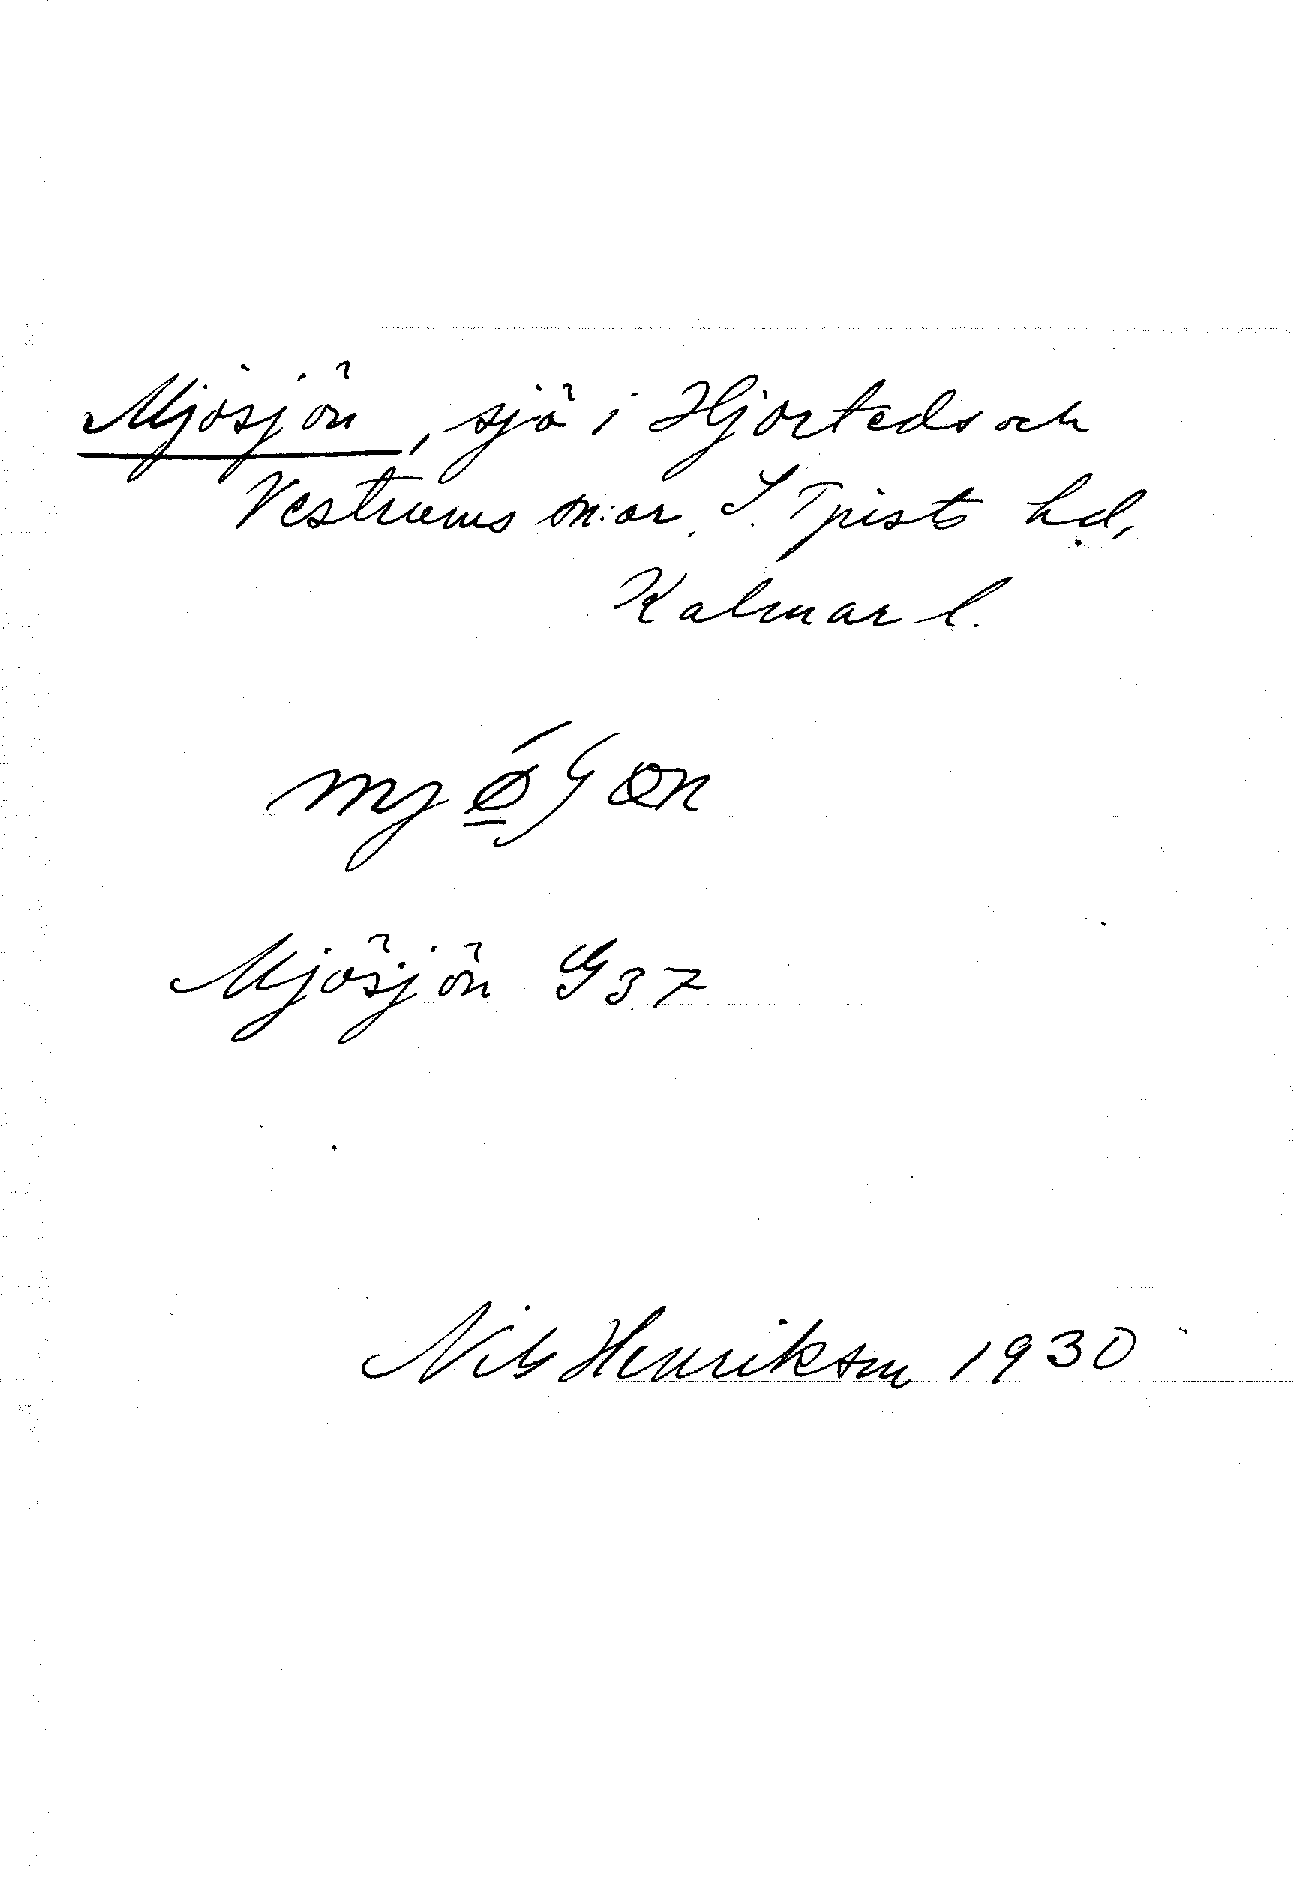 Mjösjön, sjö i Hjorteds och
Vestrums sn:ar, S. Tjusts hd,
Kalmar l.
Mjösjön G37
Nils Henrikson 1930